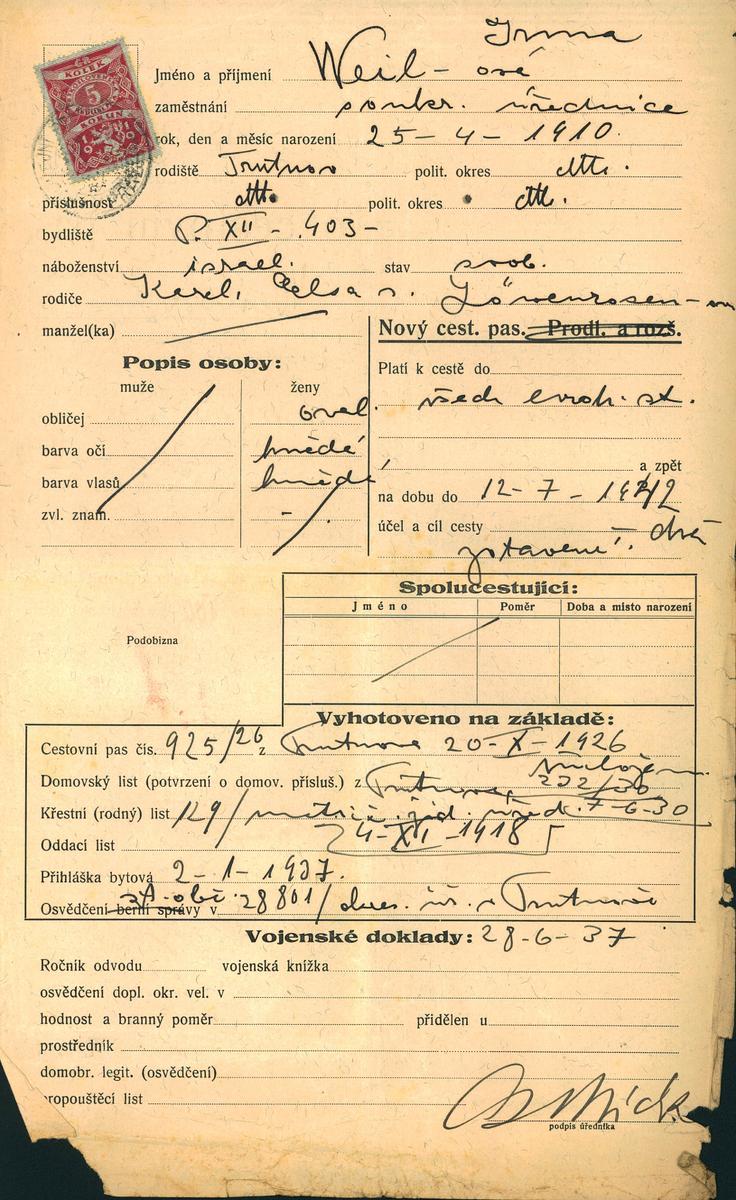 Irma
KOLEK
5
KORUN
Jméno a příjmení Weil-ová
zaměstnání soukr. úřednice
rok, den a měsíc narození 25-4-1910.
rodiště Trutnov polit. okres dtto.
příslušnost dtto. polit. okres dtto.
bydliště P. XII-403-
náboženství israel. stav svob.
rodiče Karel, Elsa r. Löwenrosen-ová
manžel(ka)
Nový cest. pas. Prodl. a rozš.
Popis osoby:
muže ženy
Platí k cestě do
všech evrop. st.
obličej oval.
barva očí hnědé
barva vlasů hnědé
zvl. znam. -
a zpět
na dobu do 12-7-1942
účel a cíl cesty
Spolucestující:
Jméno Poměr Doba a místo narození
Podobizna
Vyhotoveno na základě:
Cestovní pas čís. 925/26 z Trutnova 20-X-1926
Domovský list (potvrzení o domov. přísluš.) z Trutnova, 232/30
Křestní (rodný) list 129/ matrič. žid. 7-6-30
4-XII-1918
Oddací list
Přihláška bytová 2-1-1937.
Osvědčení berní správy v st. obč. 28801/ okres. úř. v Trutnově
Vojenské doklady: 28-6-37
Ročník odvodu vojenská knížka
osvědčení dopl. okr. vel. v
hodnost a branný poměr přidělen u
prostředník
domobr. legit. (osvědčení)
propouštěcí list
podpis úředníka